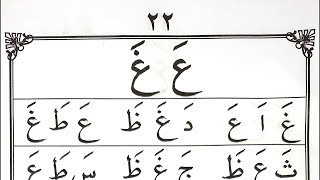 ٢٢
عَ غَ
غَ اَ عَ دَ غَ ظَ عَ طَ غَ
ثَ عَ ظَ جَ غَ ظَ سَ طَ عَ